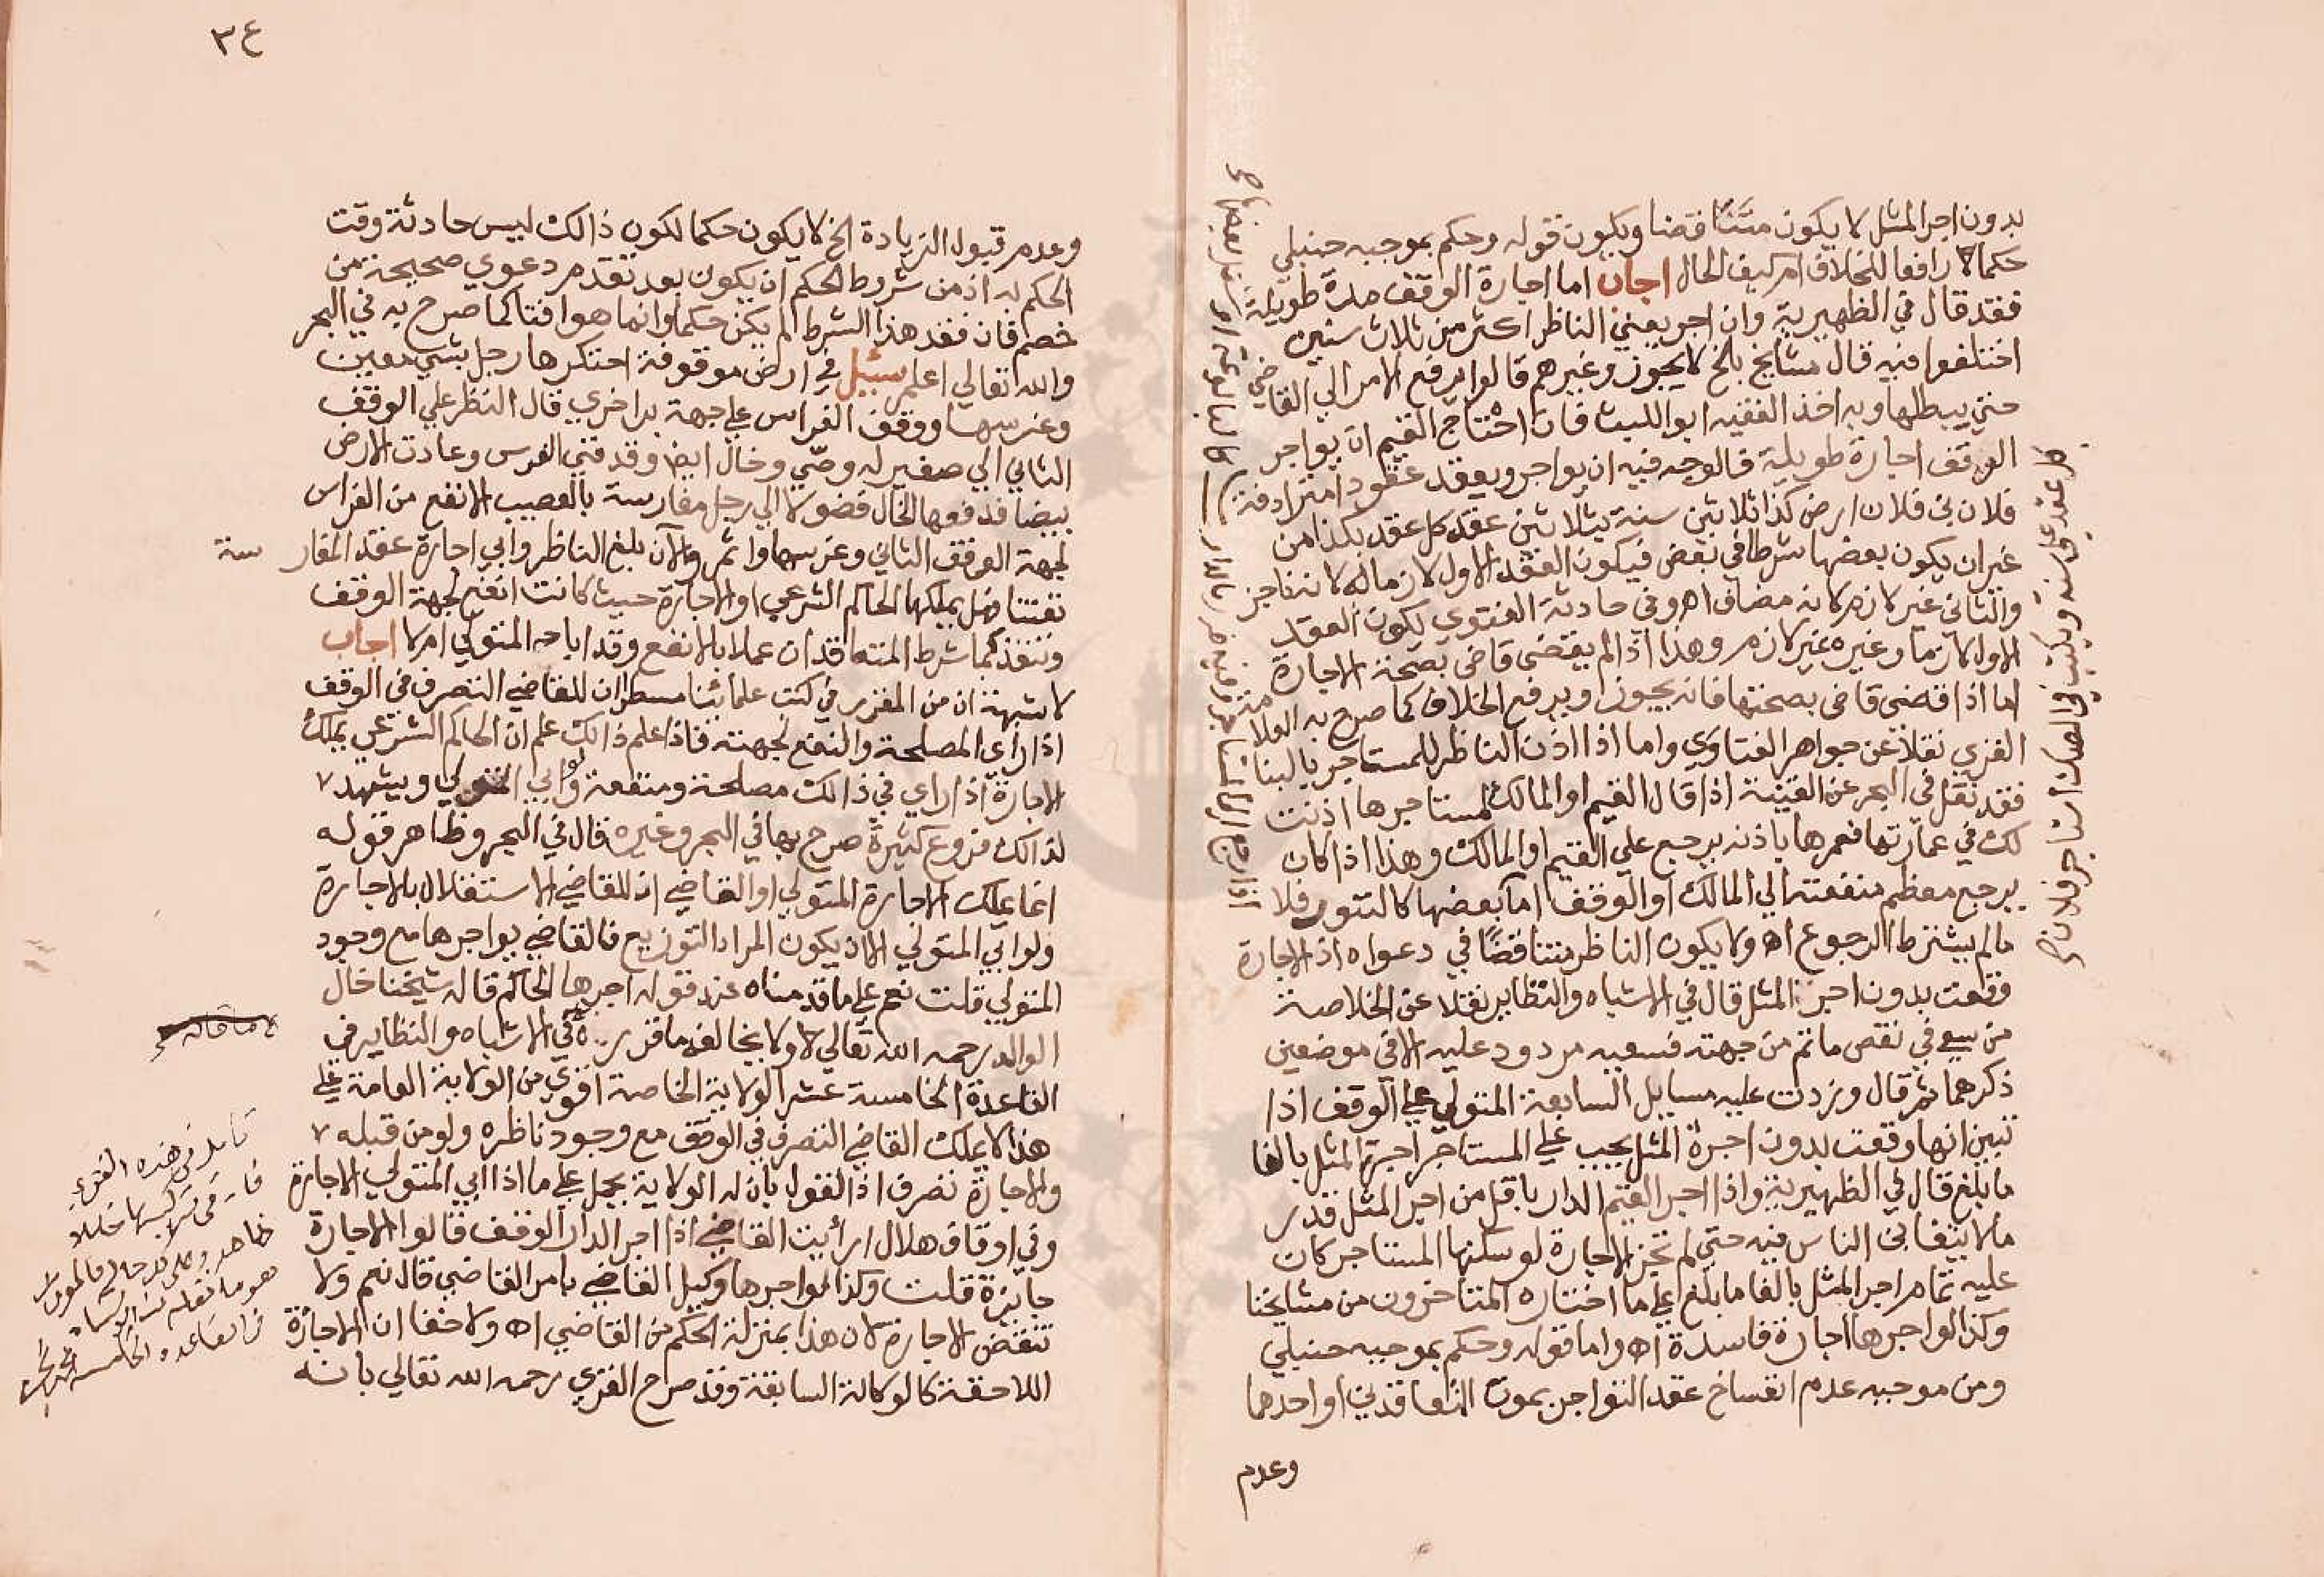 بدون اجر المثل لا يكون متناقضا ويكون قوله وحكم بموجبه حنبلي
حكما رافعا للخلاف ام كيف الحال اجاب اما اجارة الوقف مدة طويلة
فقد قال في الظهيرية وان اجر يعني الناظر اكثر من ثلاث سنين
اختلفوا فيه قال مشايخ بلخ لا يجوز وغيرهم قالوا يرفع الامر الي القاضي
حتي يبطلها وبه اخذ الفقيه ابو الليث فان احتاج القيم ان يواجر
الوقف اجارة طويلة فالوجه فيه ان يواجر ويعقد عقودا مترادفة
فلان بن فلان ارض كذا ثلاثين سنة بثلاثين عقد كل عقد بكذا من
غير ان يكون بعضها شرطا في بعض فيكون العقد الاول لازما لانه ناجز
والثاني غير لازم لانه مضاف اه وفي حادثة الفتوي يكون العقد
الاول لازما وغيره غير لازم وهذا اذا لم يقضي قاضي بصحة الاجارة
اما اذا قضي قاضي بصحتها فانه يجوز ويرفع الخلاف كما صرح به العلا
الغزي نقلا عن جواهر الفتاوي واما اذا اذن الناظر للمستاجر بالبنا
فقد نقل في البحر عن القنية اذا قال القيم او المالك لمستاجرها اذنت
لك في عمارتها فعمرها باذنه يرجع علي القيم او المالك وهذا اذا كان
يرجع معظم منفعته الي المالك او الوقف اما بعضها كالتنور فلا
مالم يشترط الرجوع اه ولا يكون الناظر متناقضا في دعواه اذ الاجارة
وقعت بدون اجر المثل قال في الاشباه والنظاير نقلا عن الخلاصة
من سعي في نقض ماتم من جهته فسعيه مردود عليه الا في موضعين
ذكرهما ثم قال وزدت عليه مسايل السابعة المتولي علي الوقف اذا
تبين انها وقعت بدون اجرة المثل يجب علي المستاجر اجرة المثل بالغا
مابلغ قال في الظهيرية واذا اجر القيم الدار باقل من اجر المثل قدر
مالا يتغابن الناس فيه حتي لم تجز الاجارة لو سكنها المستاجر كان
عليه تمام اجر المثل بالغا مابلغ علي ما اختاره المتاخرون من مشايخنا
وكذا لو اجرها اجارة فاسدة اه واما قوله وحكم بموجبه حنبلي
ومن موجبه عدم انفساخ عقد التواجر بموت المتعاقدين او احدهما
وعدم
كل عقد علي سنة ويكتب في الصك استاجر فلان
٣٤
وعدم قبول الزيادة الخ لا يكون حكما لكون ذالك ليس حادثة وقت
الحكم به اذ من شروط الحكم ان يكون بعد تقدم دعوي صحيحة من
خصم فان فقد هذا الشرط لم يكن حكما وانما هو افتا كما صرح به في البحر
والله تعالي اعلم سئيل في ارض موقوفة احتكرها رجل بشي معين
وغرسها ووقف الغراس علي جهة بر اخري قال النظر علي الوقف
الثاني الي صغير له وصي وخال ايضا وقد فني الغرس وعادت الارض
بيضا فدفعها الخال فضولا الي رجل مغارسة بالنصيب الانفع من الغراس
لجهة الوقف الثاني وغرسها واثمر والآن بلغ الناظر وابي اجارة عقد المغار سة
تعنتا هل يملكها الحاكم الشرعي او الاجازة حيث كانت انفع لجهة الوقف
وتنفذ كما شرط المتعاقدان عملا بالانفع وقد اباحه المتولي ام لا اجاب
لا شبهة ان من المقرر في كتب علمائنا مسطر ان للقاضي التصرف في الوقف
اذا راي المصلحة والنفع لجهته فاذا علم ذالك علم ان الحاكم الشرعي يملك
الاجارة اذا راي في ذالك مصلحة ومنفعة ولو ابي المتولي ويشهد
لذالك فروع كثيرة صرح بها في البحر وغيره قال في البحر وظاهر قوله
انما يملك الاجارة المتولي او القاضي ان للقاضي الاستقلال بالاجارة
ولو ابي المتولي الا ان يكون المراد التوزيع فالقاضي يواجرها مع وجود
المتولي قلت نعم علي ماقدمناه عند قوله اجرها الحاكم قاله شيخنا خال
الوالد رحمه الله تعالي ولا يخالف ماقرره في الاشباه والنظاير في
القاعدة الخامسة عشر الولاية الخاصة اقوي من الولاية العامة علي
هذا لا يملك القاضي التصرف في الوقف مع وجود ناظره ولو من قبله
والاجارة تصرف اذ القول بان له الولاية يحمل علي ما اذا ابي المتولي الاجازة
وفي اوقاف هلال ارأيت القاضي اذا اجر الدار الوقف قالوا الاجارة
جايزة قلت وكذا لو اجرها وكيل القاضي بامر القاضي قال نعم ولا
تنقض الاجارة لان هذا بمنزلة الحكم من القاضي اه ولا خفا ان الاجازة
اللاحقة كالوكالة السابقة وقد صرح الغزي رحمه الله تعالي بانه
ما قاله
تامل في هذه الفتوي